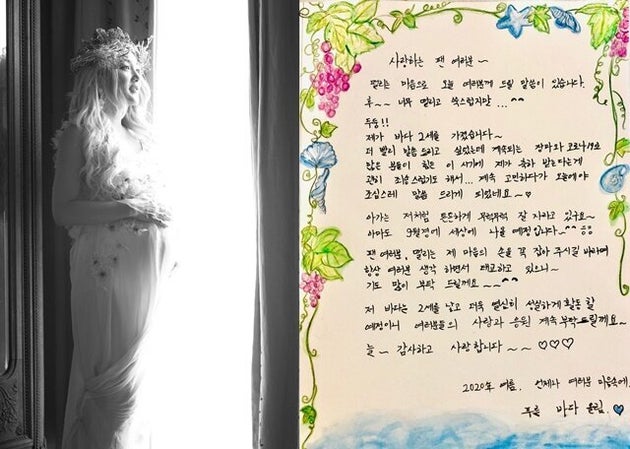 사랑하는 팬 여러분~
떨리는 마음으로 오늘 여러분께 드릴 말씀이 있습니다.
후~~ 너무 떨리고 쑥스럽지만 ...^^
두둥!!
제가 바다 2세를 가졌습니다~
더 빨리 말씀드리고 싶었는데 계속되는 장마와 코로나19로
많은 분들이 힘든 이 시기에 제가 축하 받는다는게
괜히 조심스럽기도 해서... 계속 고민하다가 오늘에야
조심스레 말씀 드리게 되었네요~♡
아가는 저처럼 튼튼하게 무럭무럭 잘 자라고 있구요~
아마도 9월경에 세상에 나올 예정입니다~^^
팬 여러분, 떨리는 제 마음의 손을 꼭 잡아 주시길 바라며
항상 여러분 생각 하면서 태교하고 있으니~
기도 많이 부탁 드릴게요~~^^
저 바다는 2세를 낳고 더욱 열심히 성실하게 활동 할
예정이니 여러분들의 사랑과 응원 계속 부탁드릴게요~
늘~ 감사하고 사랑합니다~~♡♡♡
2020年 여름. 언제나 여러분 마음속에.
푸른 바다 올림.